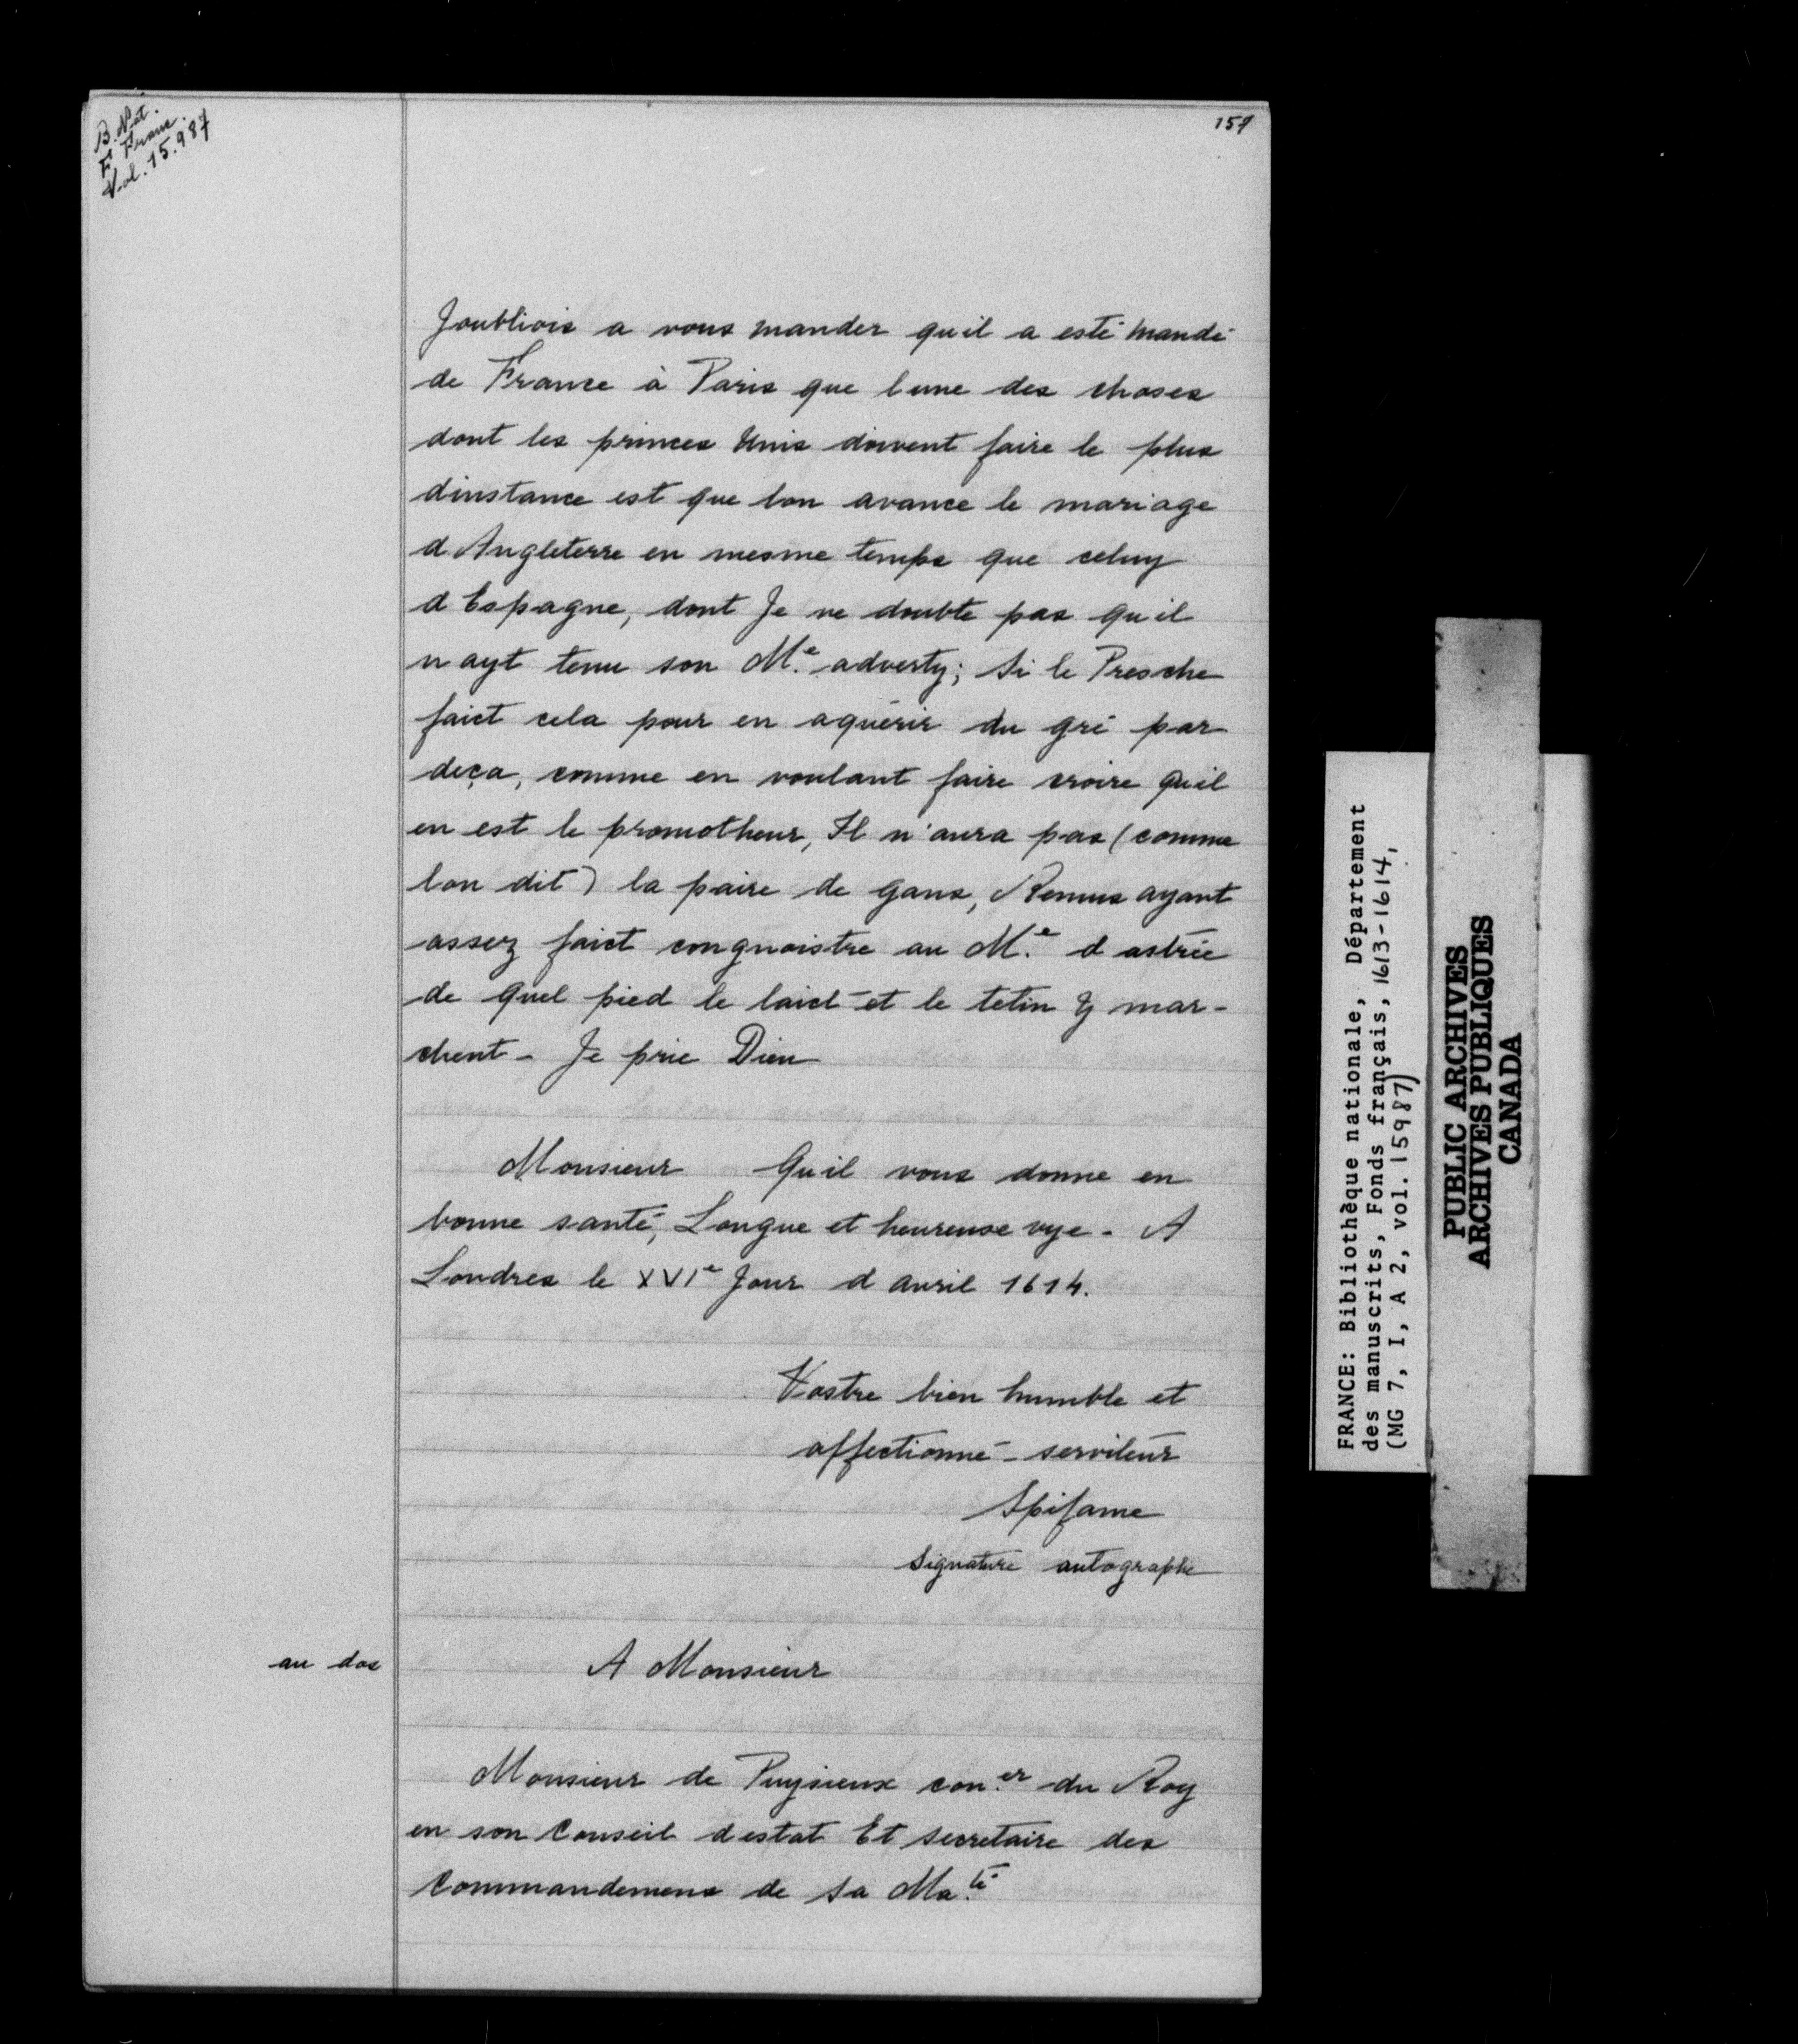 B. Nat.
Fs Franc.
Vol. 15.987
157
Joubliois a vous mander quil a esté mandé
de France à Paris que lune des choses
dont les princes Unis doivent faire le plus
dinstance est que lon avance le mariage
d Angleterre en mesme temps que celuy
d Espagne, dont Je ne doubte pas quil
n ayt tenu son M.e adverty; Si le Presche
faict cela pour en aquérir du gré par
deça, comme en voulant faire croire quil
en est le promotheur, Il n'aura pas (comme
lon dit) la paire de gans, Remus ayant
assez faict congnoistre au M.e d astrée
de quel pied le laict et le tetin y mar-
chent - Je prie Dieu
Monsieur Quil vous donne en
bonne santé, Longue et heureuse vye - A
Londres le XVIe Jour d avril 1614.
Vostre bien humble et
affectionné serviteur
Spifame
Signature autographe
au dos
A Monsieur
Monsieur de Puysieux con.er du Roy
en son Conseil destat Et secretaire des
Commandemens de Sa Ma.té
FRANCE: Bibliothèque nationale, Département
des manuscrits, Fonds français, 1613-1614,
(MG 7, I, A 2, vol. 15987)
PUBLIC ARCHIVES
ARCHIVES PUBLIQUES
CANADA